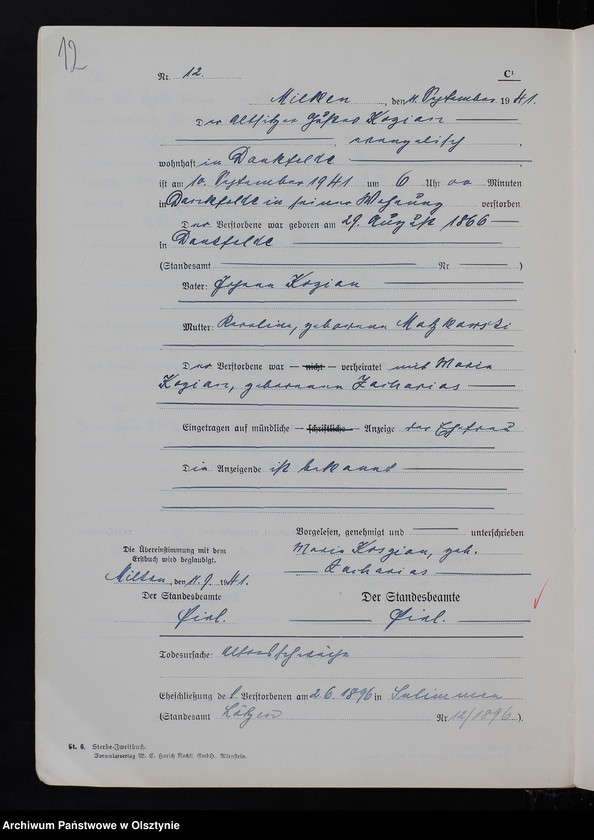 12
Nr. 12.
C¹
Milken, den 11. September 1941.
Der Altsitzer Gustav Kozian
evangelisch
wohnhaft in Dankfelde
ist am 10. September 1941 um 6 Uhr 00 Minuten
in Dankfelde in seiner Wohnung verstorben
Der Verstorbene war geboren am 29. August 1866
in Dankfelde
(Standesamt Nr. )
Vater: Johann Kozian
Mutter: Karoline, geborene
Der Verstorbene war — nicht — verheiratet mit Marie
Kozian, geborenen Zacharias
Eingetragen auf mündliche — schriftliche — Anzeige der Ehefrau
Die Anzeigende ist bekannt
Vorgelesen, genehmigt und unterschrieben
Marie Koszian, geb.
Zacharias
Die Übereinstimmung mit dem
Erstbuch wird beglaubigt.
Milken, den 11.9. 1941.
Der Standesbeamte
Der Standesbeamte
Todesursache: Altersschwäche
Eheschließung de Verstorbenen am 2.6.1896 in
(Standesamt Lötzen Nr. 12/1896.)
St. 6. Sterbe-Zweitbuch.
Formularverlag W. E. Harich Nachfl. GmbH., Allenstein.
Archiwum Państwowe w Olsztynie